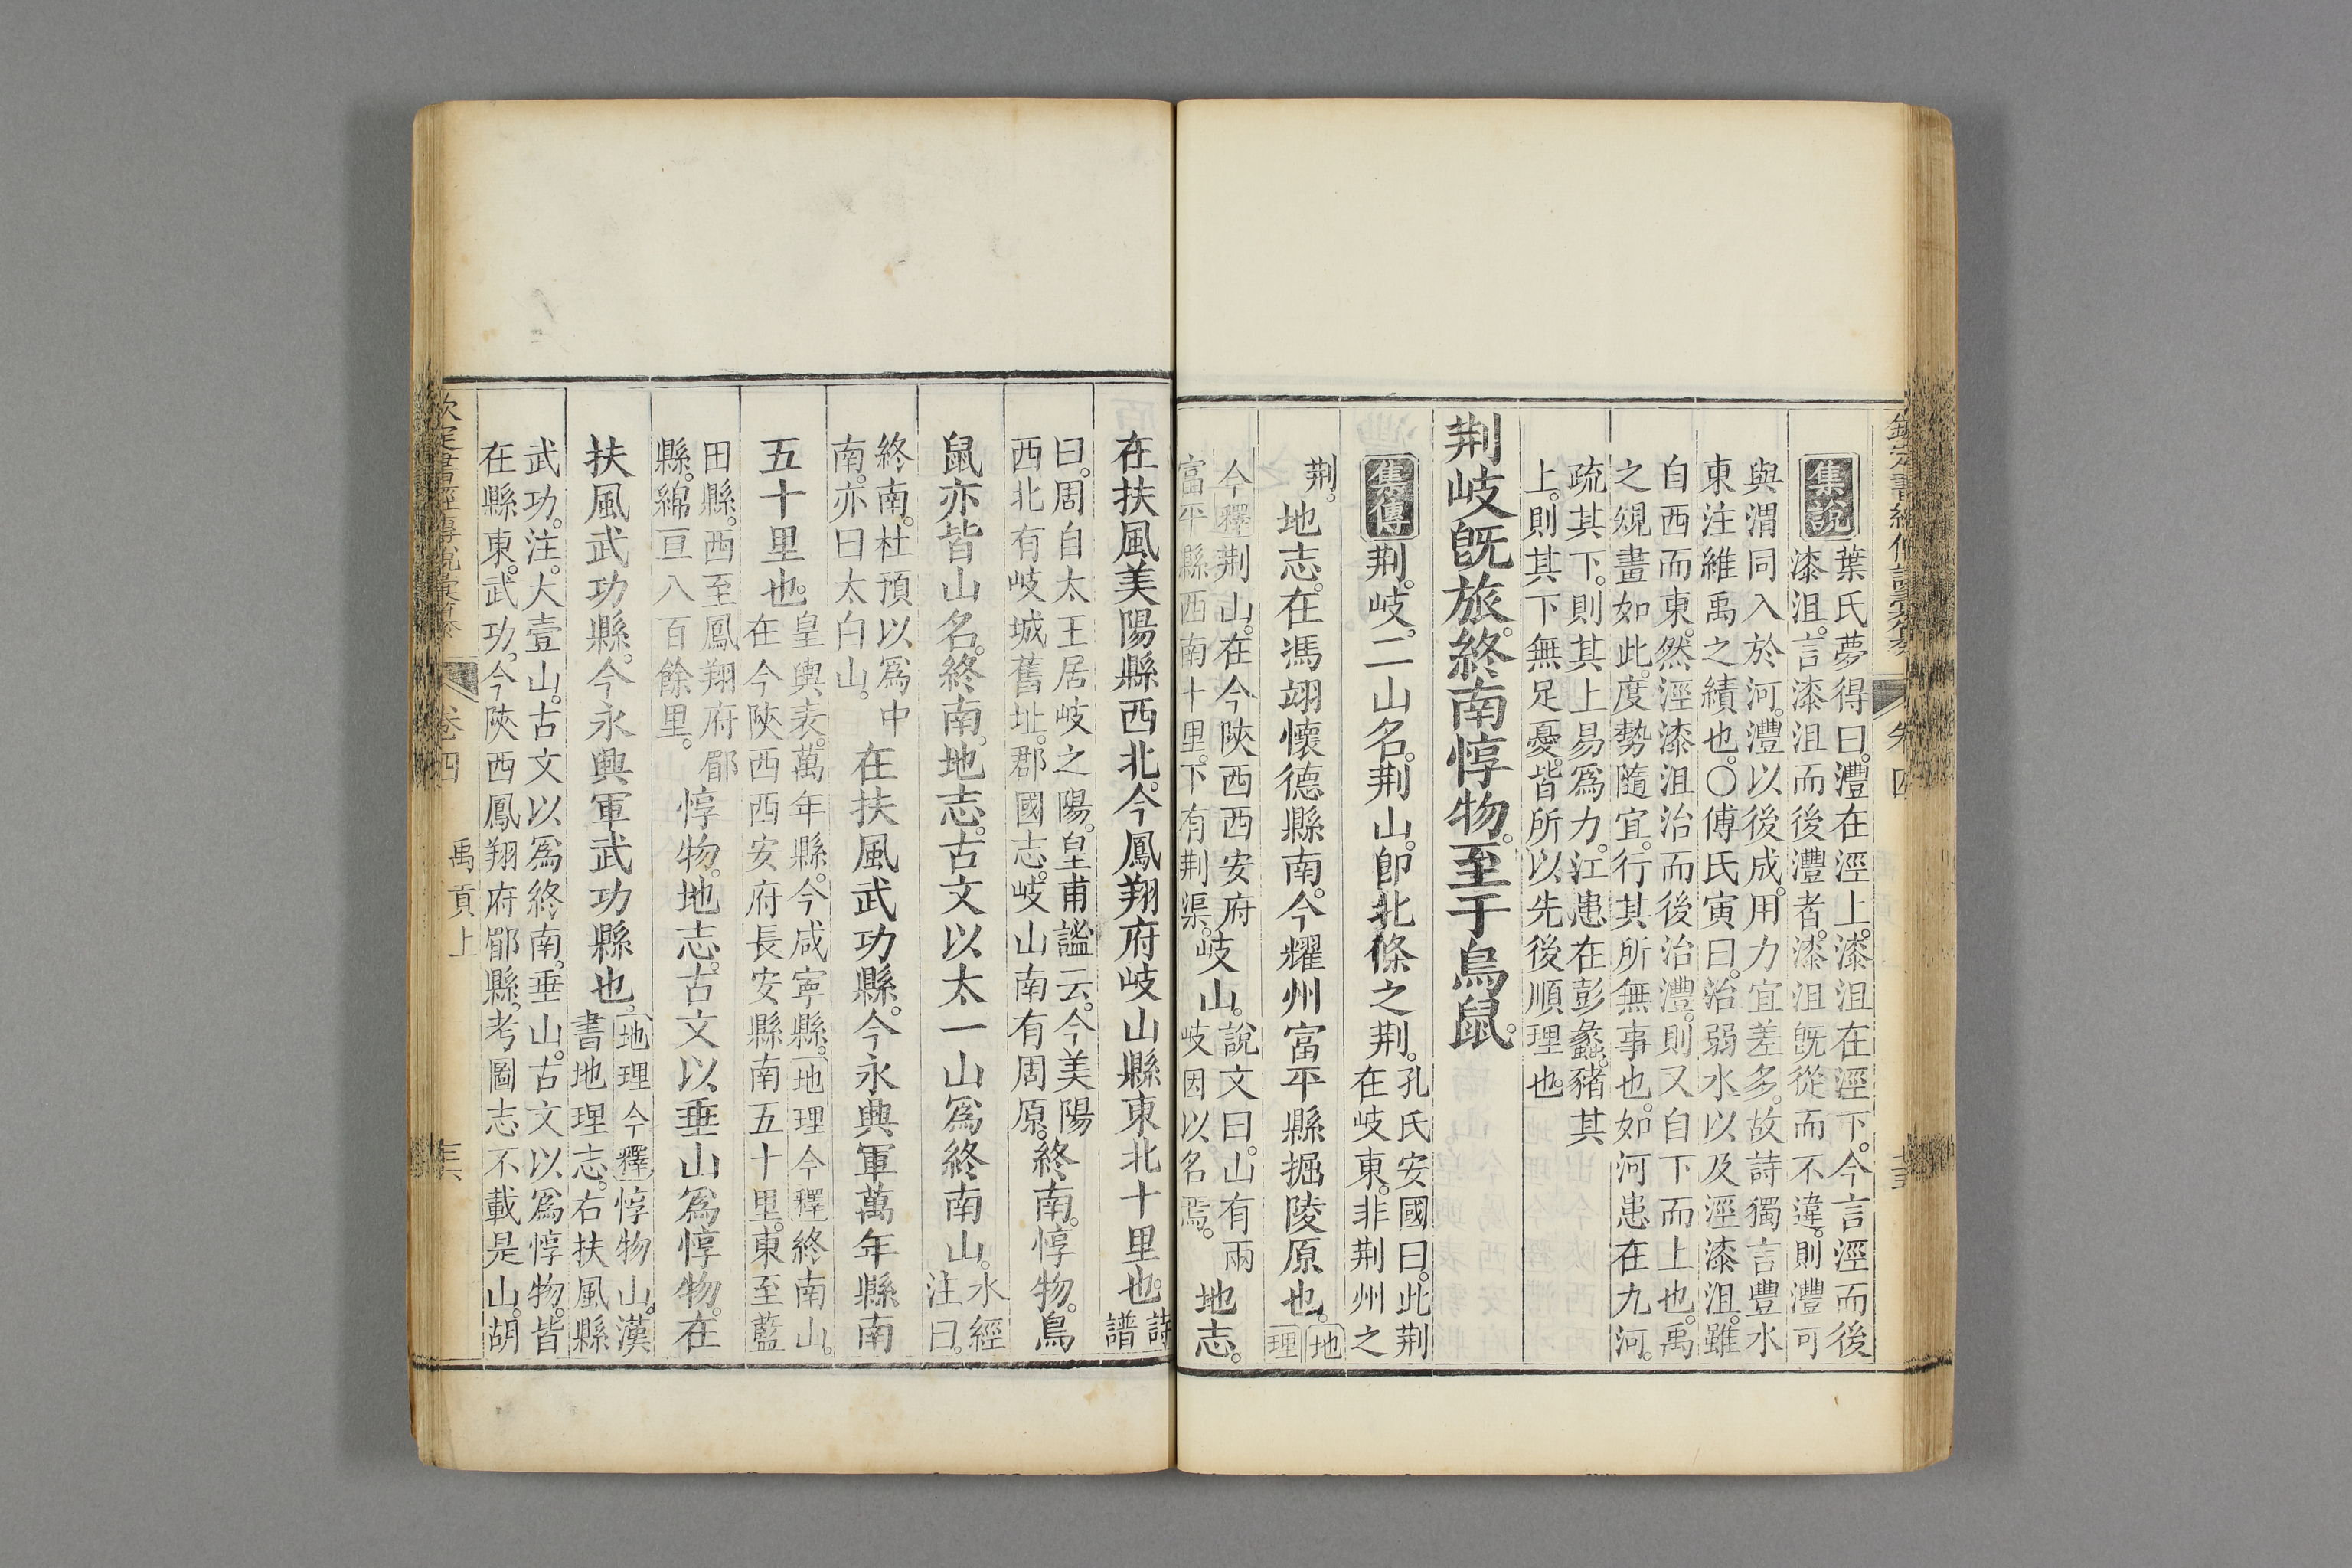 集說
葉氏夢得曰。灃在涇上。漆沮在涇下。今言涇而後
漆沮。言漆沮而後灃者。漆沮旣從而不違。則灃可
與渭同入於河。灃以後成。用力宜差多。故詩獨言豐水
東注維禹之績也。〇傅氏寅曰。治弱水以及涇漆沮。雖
自西而東。然涇漆沮治而後治灃。則又自下而上也。禹
之規畫如此。度勢隨宜。行其所無事也。如河患在九河。
疏其下。則其上易爲力。江患在彭蠡。豬其
上。則其下無足憂。皆所以先後順理也。
荆岐旣旅。終南惇物。至于鳥鼠。
集傳
荆。岐。二山名。荆山。卽北條之荆。
孔氏安國曰。此荆
在岐東。非荆州之
荆。
地志。在馮翊懷德縣南。今耀州富平縣掘陵原也。
地
理
今釋荆山。在今陝西西安府
富平縣西南十里。下有荆渠。
岐山。
說文曰。山有兩
岐因以名焉。
地志。
在扶風美陽縣西北。今鳳翔府岐山縣東北十里也。
詩
譜
曰。周自太王居岐之陽。皇甫謐云。今美陽
西北有岐城舊址。郡國志。岐山南有周原。
終南。惇物。鳥
鼠亦皆山名。終南。地志。古文以太一山爲終南山。
水經
注曰。
終南。杜預以爲中
南。亦曰太白山。
在扶風武功縣。今永興軍萬年縣南
五十里也。
皇輿表。萬年縣。今咸寧縣。地理今釋終南山。
在今陝西西安府長安縣南五十里。東至藍
田縣。西至鳳翔府郿
縣。綿亘八百餘里。
惇物。地志。古文以垂山爲惇物。在
扶風武功縣。今永興軍武功縣也。
地理今釋惇物山。漢
書地理志。右扶風縣
武功。注。大壹山。古文以爲終南。垂山。古文以爲惇物。皆
在縣東。武功。今陝西鳳翔府郿縣。考圖志不載是山。胡
卷四
禹貢上